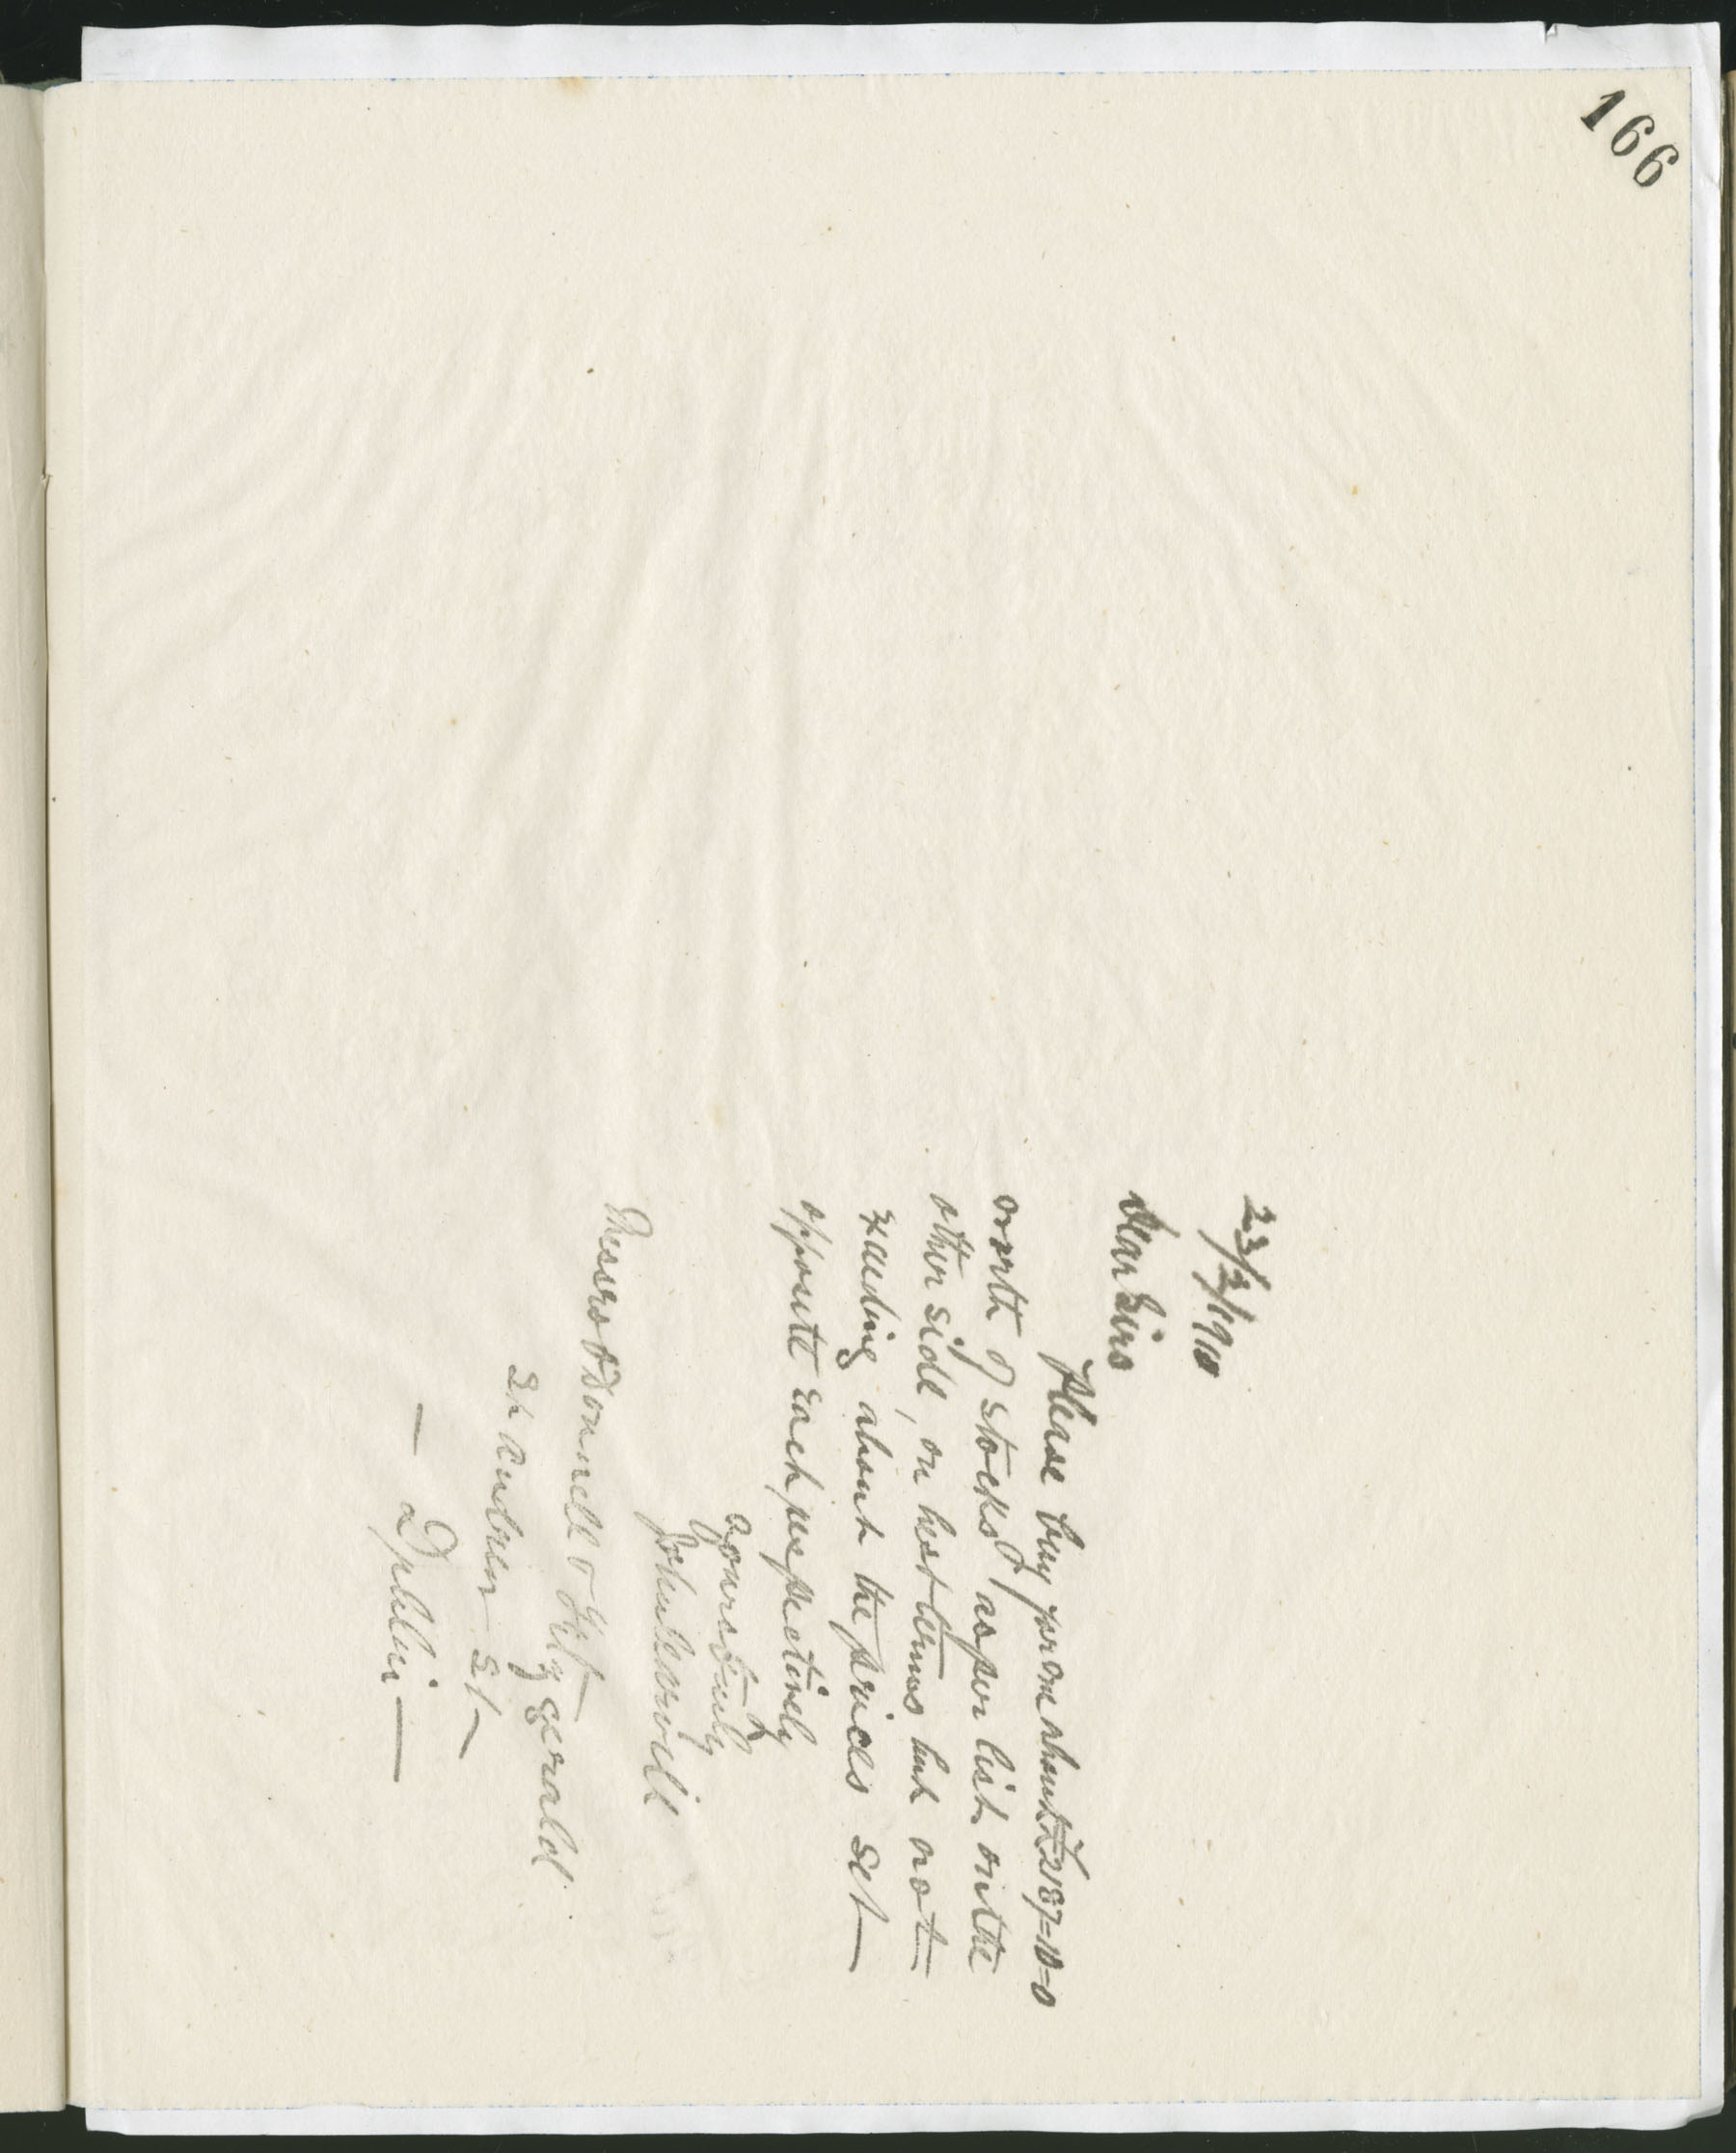 166
23/2/1910
Dear Sirs
Please buy for me about £2187=10=0
worth of stocks as per list on the
other side, on best terms but not
exceeding about the prices set
opposite each respectively
Yours truly
Messrs O'Donnell & Fitzgerald
24 Andrew St
Dublin